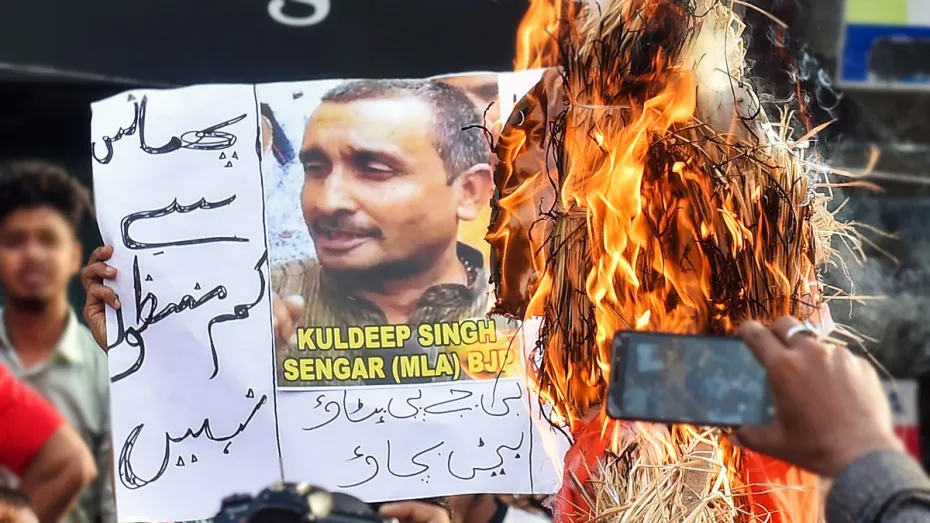 پھانسی
سے
کم منظور
نہیں
KULDEEP SINGH
SENGAR (MLA) BJP
بی جے پی ہٹاؤ
بیٹی بچاؤ